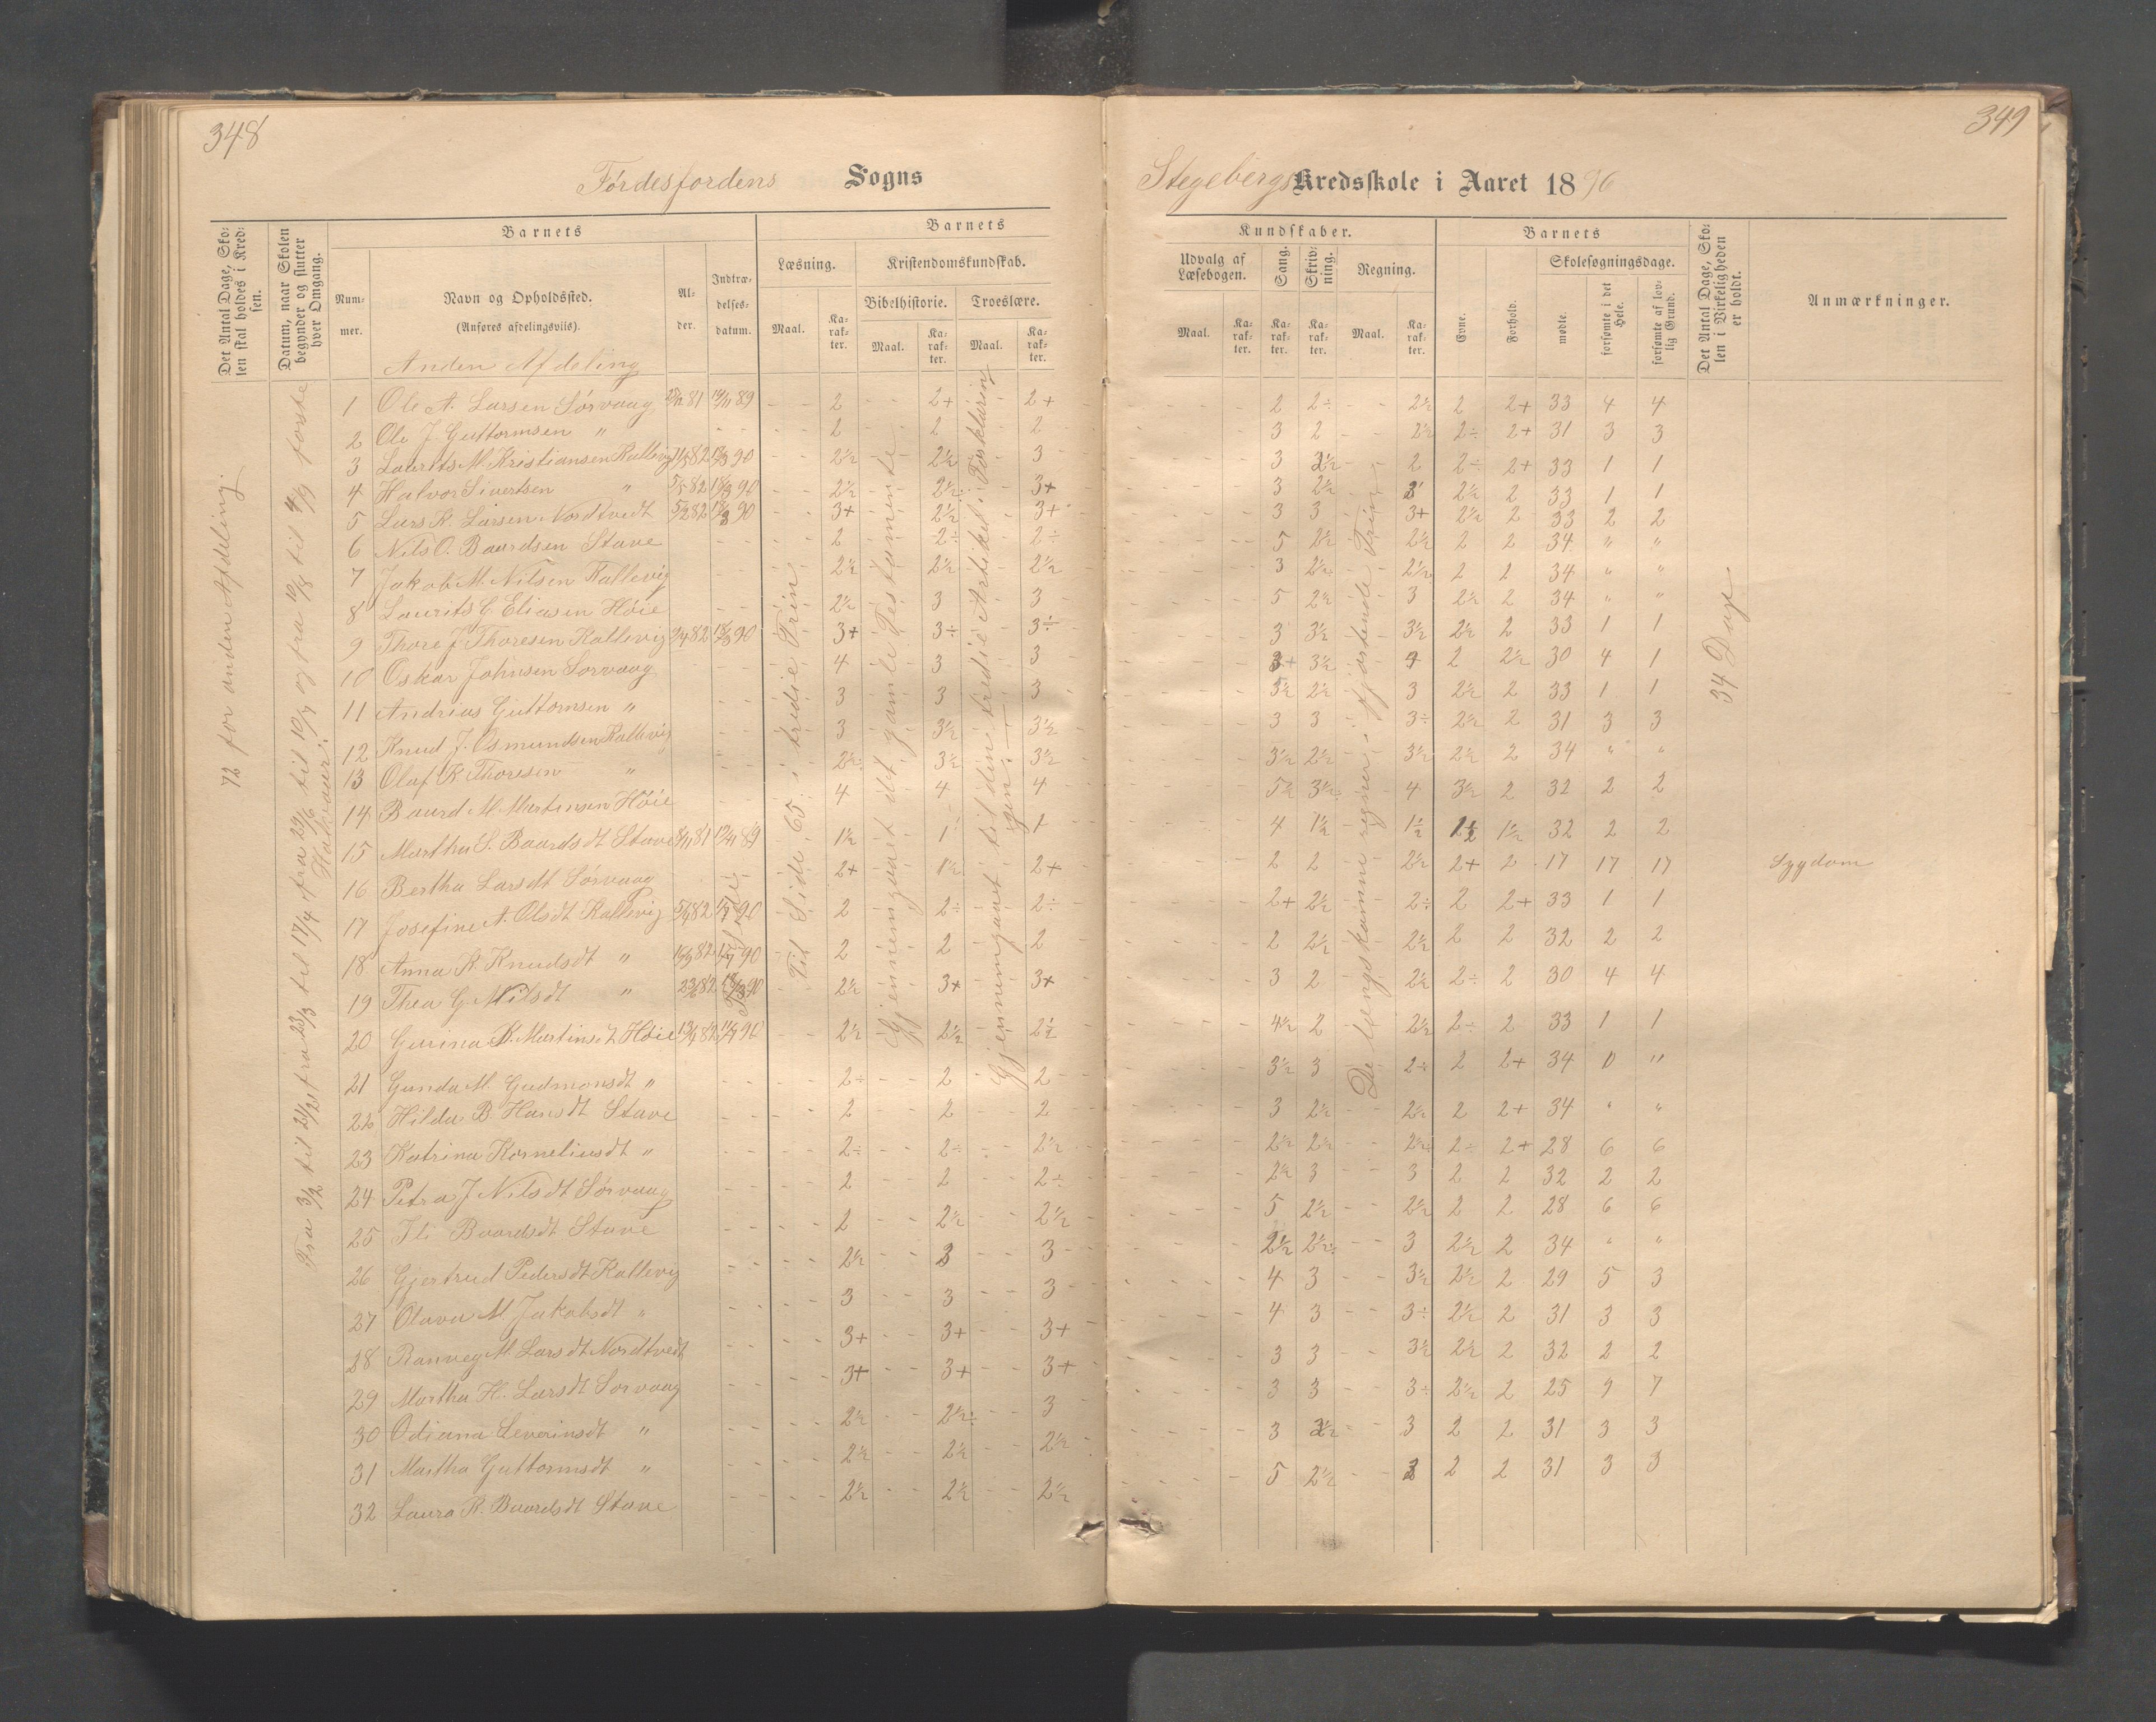 348
Førdesfjordens Sogns
Det Antal Dage, Sko-
len skal holdes i Kred-
sen.
Datum, naar Skolen
begynder og slutter
hver Omgang.
Barnets
Barnets
Num-
mer.
Navn og Opholdssted.
(Anføres afdelingsviis).
Al-
der.
Indtræ-
delses-
datum.
Læsning.
Kristendomskundskab.
Bibelhistorie.
Troeslære.
Maal.
Ka-
rak-
ter.
Maal.
Ka-
rak-
ter.
Maal.
Ka-
rak-
ter.
Anden Afdeling
72 for anden Afdeling.
Til Side 65 i tredie Trin
Gjennemgaaet det gamle Testamente
Gjennemgaaet til den tredie Artikel i Forklaringen.
1 Ole A. Larsen Sørvaag 2 2+ 2+
2 Ole J. Guttormsen " 2 2 2
3 Laurits M. Kristiansen Kallevig 2½ 2½ 3
4 Halvor Sivertsen " 2½ 2½ 3+
5 Lars K. Larsen Nordtvedt 3+ 2½ 3+
6 Nils O. Baardsen Stave 2 2÷ 2÷
7 Jakob M. Nilsen Kallevig 2½ 2½ 2½
8 Laurits E. Eliasen Høie 2½ 3 3
9 Thore J. Thoresen Kallevig 3+ 3÷ 3÷
10 Oskar Johnsen Sørvaag 4 3 3
11 Andreas Guttormsen " 3 3 3
12 Knud J. Osmundsen Kallevig 3 3½ 3½
13 Olaf K. Thoresen " 2½ 3½ 3½
14 Baard M. Martinsen Høie 4 4 4
15 Martha S. Baardsdt Stave 1½ 1 1
16 Bertha Larsdt Sørvaag 2+ 1½ 2+
17 Josefine A. Olsdt Kallevig 2 2÷ 2÷
18 Anna K. Knudsdt " 2 2 2
19 Thea G. Nilsdt " 2½ 3+ 3+
20 Gurina K. Martinsdt Høie 2½ 2½ 2½
21 Gunda M. Gudmonsdt " 2÷ 2 2
22 Hilda B. Hansdt Stave 2 2 2
23 Katrina Korneliusdt " 2÷ 2÷ 2½
24 Petra J. Nilsdt Sørvaag 2 2 2÷
25 Baardsdt Stave 2 2½ 2½
26 Gjertrud Pedersdt Kallevig 2½ 3 3
27 Olava M. Jakobsdt " 3 3 3
28 Ranveg M. Larsdt Nordtvedt 3+ 3+ 3+
29 Martha H. Larsdt Sørvaag 3+ 3+ 3+
30 Odiana Severinsdt " 2½ 2½÷ 3
31 Martha Guttormsdt " 2½ 2½ 2½
32 Laura K. Baardsdt Stave 2½ 2½ 2½
349
Stegebergs Kredsskole i Aaret 1890
Kundskaber.
Barnets
Udvalg af
Læsebogen.
Sang.
Skriv-
ning.
Regning.
Skolesøgningsdage.
Maal.
Ka-
rak-
ter.
Ka-
rak-
ter.
Ka-
rak-
ter.
Maal.
Ka-
rak-
ter.
Evne.
Forhold.
mødte.
forsømte i det
Hele.
forsømte af lov-
lig Grund.
Det Antal Dage, Sko-
len i Virkeligheden
er holdt.
Anmærkninger.
34 Dage.
2 2÷ 2½ 2 2+ 33 4 4
3 2 2½ 2÷ 2+ 31 3 3
3 2½ 2 2÷ 2+ 33 1 1
3 2½ 3 2½ 2 33 1 1
3 3 3+ 2½ 2 33 2 2
5 2½ 2½ 2 2 34 " "
3 2½ 2½ 2 2 34 " "
5 2½ 3 2½ 2 34 " "
3 3½ 3½ 2½ 2 33 1 1
3½ 4 2 2½ 30 4 1
3½ 2½ 3 2½ 2 33 1 1
3 3 3÷ 2½ 2 31 3 3
3½ 2½ 3½ 2½ 2 34 " "
5½ 3½ 4 3½ 2 32 2 2
4 1½ 1½ 1½ 1½ 32 2 2
2 2 2½ 2+ 2 17 17 17 Sygdom
2+ 2½ 2÷ 2 2+ 33 1 1
2 2½ 2½ 2 2 32 2 2
3 2 2½ 2÷ 2 30 4 4
4½ 2 2½ 2÷ 2 33 1 1
3½ 3 2÷ 2 2+ 34 0 "
3 2½ 2½ 2 2+ 34 " "
2½ 2½ 2½ 2÷ 2+ 28 6 6
2½ 3 3 2 2 32 2 2
5 2½ 2½ 2 2 28 6 6
2½ 2½ 3 2½ 2 34 " "
4 3 3½ 2½ 2 29 5 3
4 3 3÷ 2½ 2 31 3 3
3 3 3½ 2½ 2 32 2 2
3 3 3÷ 2½ 2 25 9 7
3 2½ 3 2 2 31 3 3
5 2½ 3 2 2 31 3 3